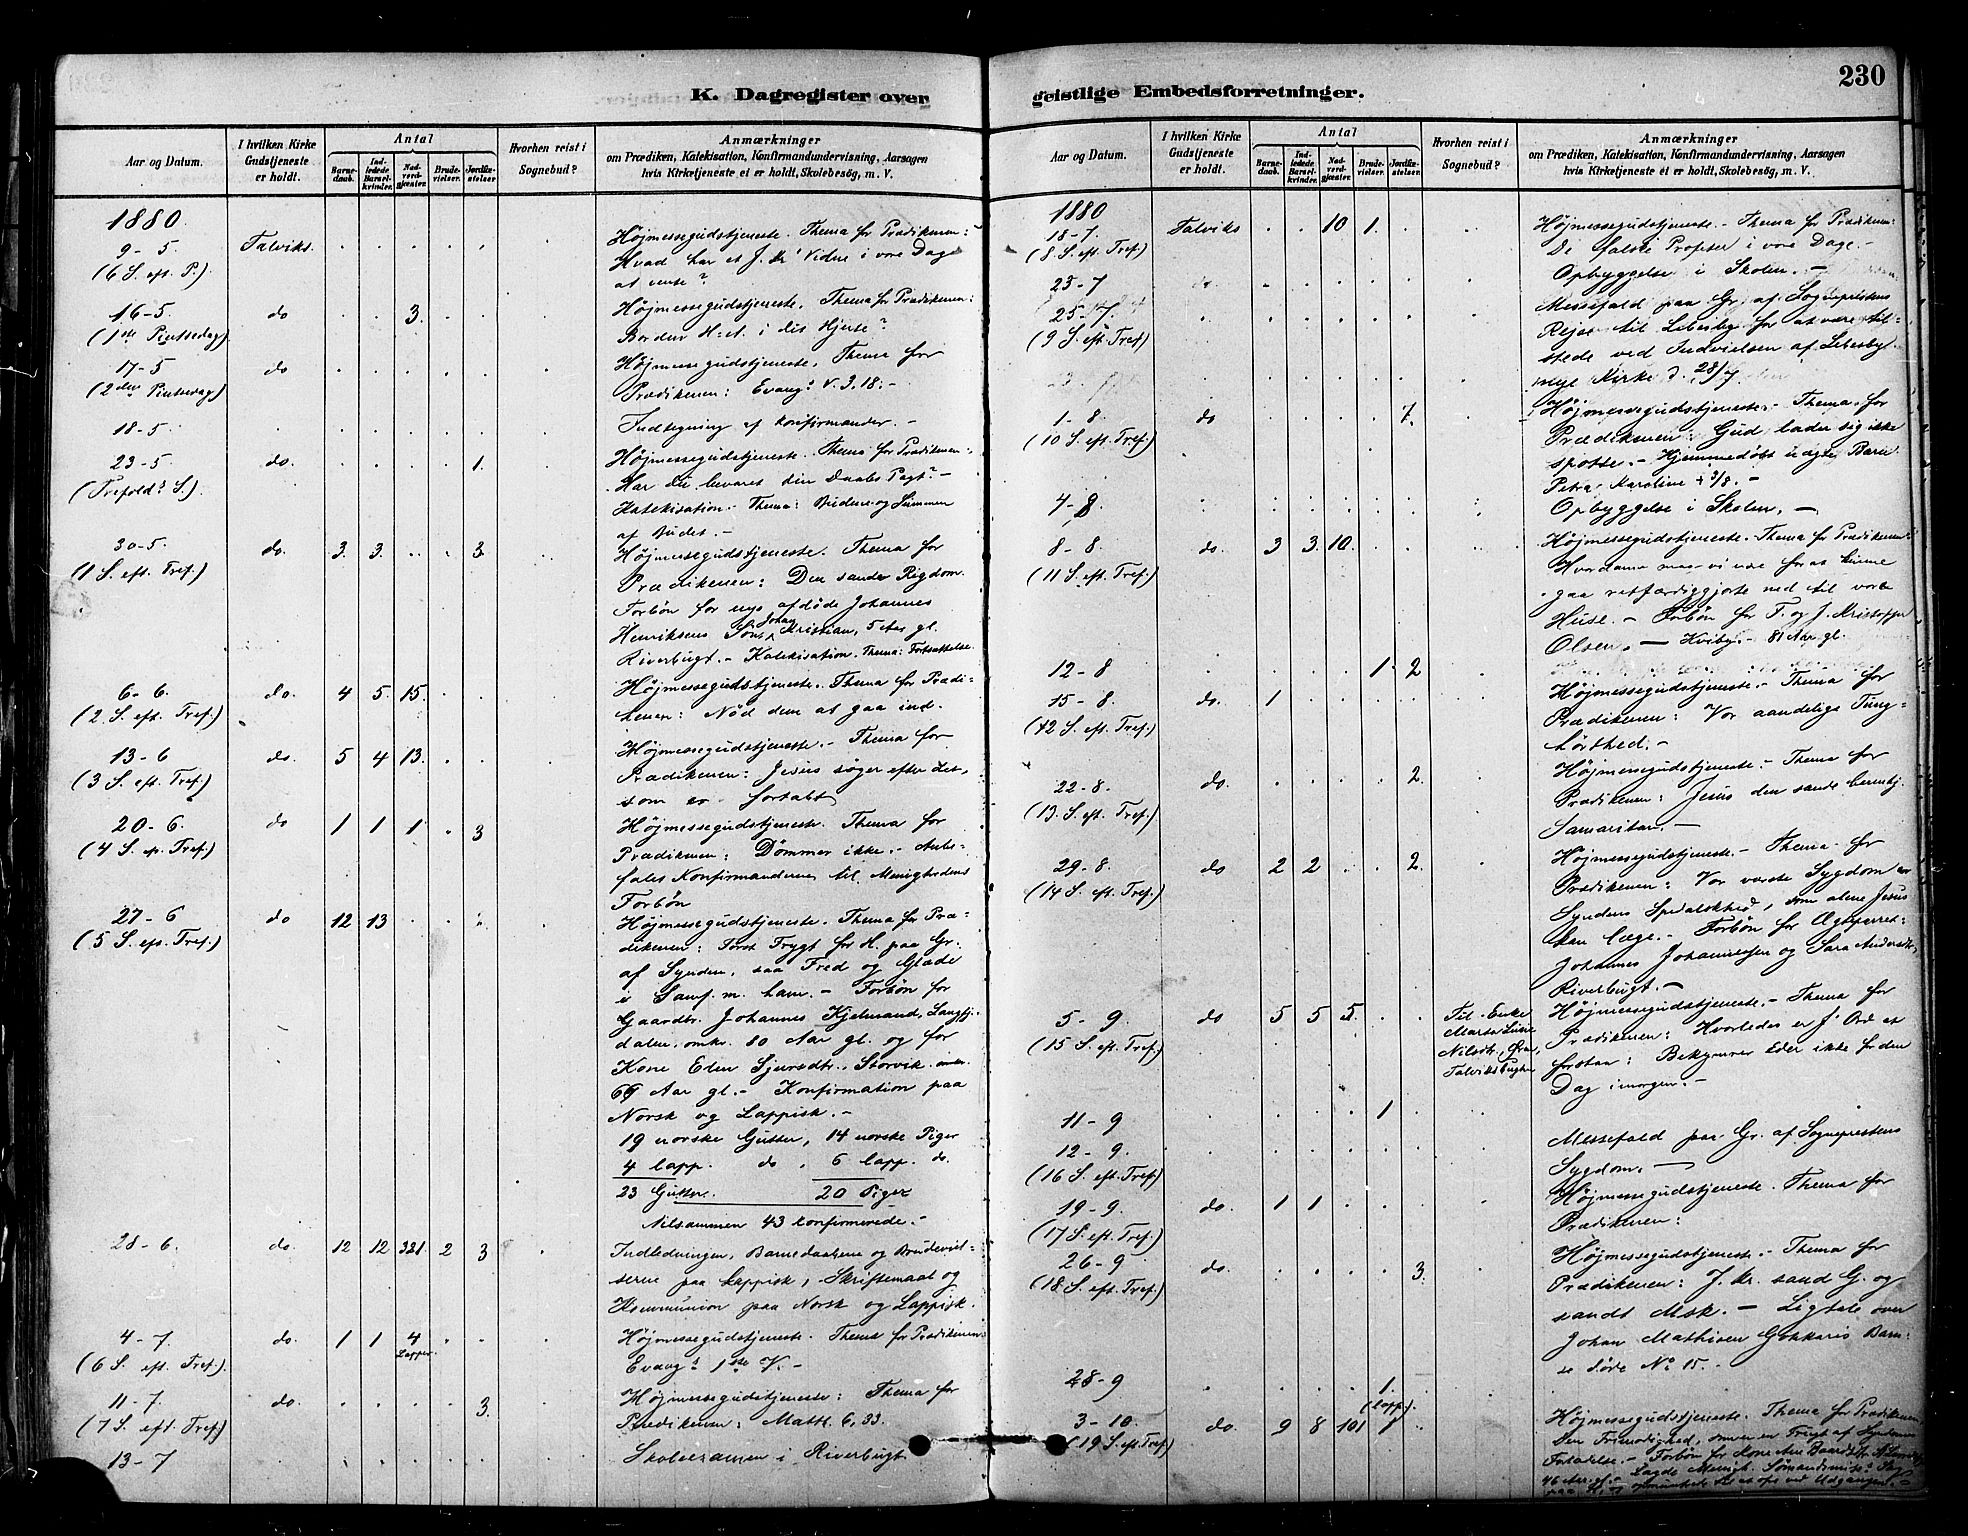 K. Dagregister over
Aar og Datum.
I hvilken Kirke Gudstjeneste er holdt.
Antal
Barnedaab.
Indledede Barselkvinder.
Nadverdgjester.
Brudevielser.
Jordfæstelser.
Hvorhen reist i Sognebud?
Anmærkninger
om Prædiken, Katekisation, Konfirmandundervisning, Aarsagen
hvis Kirketjeneste ei er holdt, Skolebesøg, m. V.
1880.
9-5 Talviks. Højmessegudstjeneste. Thema for Prædikenen:
(6 S. eft. P.) Hvad har et J. Kr' Vidne i vore Dage
at vente?
16-5. do 3. Højmessegudstjeneste. Thema for Prædikenen:
(1ste Pintsedag) Bor den H. A. i dit Hjerte?
17-5 do Højmessegudstjeneste. Thema for
(2den Pintsedag) Prædikenen: Evang? V. 3. 18. -
18-5 Indtegning af Konfirmander. -
23-5 do. 1. Højmessegudstjeneste. Thema for Prædikenen:
(Trefold? S.) Har du bevaret din Daabs Pagt? -
Katekisation. - Thema: Budene og Summen
af Budet. -
30-5. do. 3. 3. 3. Højmessegudstjeneste. Thema for
(1 S. eft. Tref.) Prædikenen: Den sande Rigdom.
Forbøn for nys afdøde Johannes
Henriksens Søns Johan Kristian, 5 Aar gl.
Riverbugt. - Katekisation. Thema: Fortsættelse
6-6. do. 4 5. 15. Højmessegudstjeneste. Thema for Prædi-
(2 S. eft. Tref.) kenen: Nød dem at gaa ind.
13-6 do. 5 4 13. Højmessegudstjeneste. - Thema for
(3 S. eft. Tref.) Prædikenen: Jesus søger efter det,
som er fortabt
20-6. do 1 1 1. 3 Højmessegudstjeneste. Thema for
(4 S. ef. Tref.) Prædikenen: Dømmer ikke. - Anbe-
fales Konfirmanderne til Menighedens
Forbøn
27-6 do 12 13 Højmessegudstjeneste. Thema for Præ-
(5 S. eft. Tref.) dikenen: Først Frygt for H. paa Gr.
af Synden, saa Fred og Glæde
i Samf. m. ham. - Forbøn for
Gaardbr. Johannes Kjelmand, Langfj-
dalen, omkr. 80 Aar gl. og for
Kone Elen Sjursdtr., Storvik
69 Aar gl. - Konfirmation paa
Norsk og Lappisk. -
19 norske Gutter, 14 norske Piger
4 lapp. do, 6 lapp. do.
23 Gutter. 20 Piger
Tilsammen 43 konfirmerede. -
28-6. do. 12 12 321. 2 3 Indledningen, Barnedaabene og Brudeviel-
serne paa Lappisk, Skriftemaal og
Kommunion paa Norsk og Lappisk.
4-7 do. 1 1 4 Lapper. Højmessegudstjeneste. Thema for Prædikenen:
(6 S. eft. Tref.) Evang? 1ste V. -
11-7. do. 3. Højmessegudstjeneste: Thema for
(7 S. eft. Tref.) Prædikenen: Matth. 6, 33.
13-7 Skoleexamen i Riverbugt
geistlige Embedsforretninger.
230
Aar og Datum.
I hvilken Kirke Gudstjeneste er holdt.
Antal
Barnedaab.
Indledede Barselkvinder.
Nadverdgjester.
Brudevielser.
Jordfæstelser.
Hvorhen reist i Sognebud?
Anmærkninger
om Prædiken, Katekisation, Konfirmandundervisning, Aarsagen
hvis Kirketjeneste ei er holdt, Skolebesøg, m. V.
1880
18-7. Talviks 10 1. Højmessegudstjeneste. - Thema for Prædikenen:
(8 S. eft. Tref.) De falske Profeter i vore Dage. -
23-7 do. Opbyggelse i Skolen. -
25-7. Messefald paa Gr. af Sogneprestens
(9 S. eft. Tref) Rejse til Lebesby for at være til-
stede ved Indvielsen af Lebesby
nye Kirke d. 28/7.
1-8 do 7. Højmessegudstjeneste. - Thema for
(10 S. eft. Tref.) Prædikenen: Gud lader sig ikke
spotte. - Hjemmedøbt uægte Barn
Petra Karoline 3/8. -
4-8. Opbyggelse i Skolen. -
8-8 do. 3 3. 10. Højmessegudstjeneste. - Thema for Prædikenen:
(11 S. eft. Tref.) Hvordan maa vi være for at kunne
gaa retfærdiggjorte ned til vore
Huse. - Forbøn for F. og J. Kristoffer
Olsen. - Kviby. - 81 Aar gl.
12-8 1. 2
15-8. do. 1 Højmessegudstjeneste. - Thema for
(12 S. eft. Tref.) Prædikenen: Vor aandelige Tung-
hørthed. -
22-8. do. 2. Højmessegudstjeneste. - Thema for
(13. S. eft. Tref.) Prædikenen: Jesus den sande barmhj.
Samaritan. -
29-8. do 2 2 2. Højmessegudstjeneste. - Thema for
(14 S. eft. Tref.) Prædikenen: Vor værste Sygdom er
Syndens Spedalskhed, som alene Jesus
kan læge. - Forbøn for Ægteparret
Johannes Johannessen og Sara Andersdtr,
Riverbugt. -
5-9. do 5 5 5. Til Enke Højmessegudstjeneste. - Thema for
(15 S. eft. Tref.) Marta Lucie Prædikenen: Hvorledes er J' Ord at
Nilsdtr., Øren, forstaa: Bekymrer Eder ikke for den
Talviksbugten Dag i morgen. -
11-9 1
12-9. Messefald paa Gr. af Sogneprestens
(16 S. eft. Tref.) Sygdom. -
19-9. do. 1 1 Højmessegudstjeneste. Thema for
(17 S. eft. Tref.) Prædikenen:
26-9 do. 3. Højmessegudstjeneste. - Thema for
(18 S. eft. Tref.) Prædikenen: J. Kr. sand G. og
sandt Msk. - Ligtale over
Johan Mathisen Gokkaris Barn
se døde No 15. -
28-9 1. (lapp).
3-10. do 9 8 101 1 Højmessegudstjeneste. Thema for Prædikenen:
(19 S. eft. Tref) Den Frimodighed, som er en Frugt af Syndernes
Forladelse. - Forbøn for Kone
46 Aar. gl. - Lagde Menigh. Sømandsmiss? Sag
paa H. og opmuntrede til at ofre ved Udgangen. -